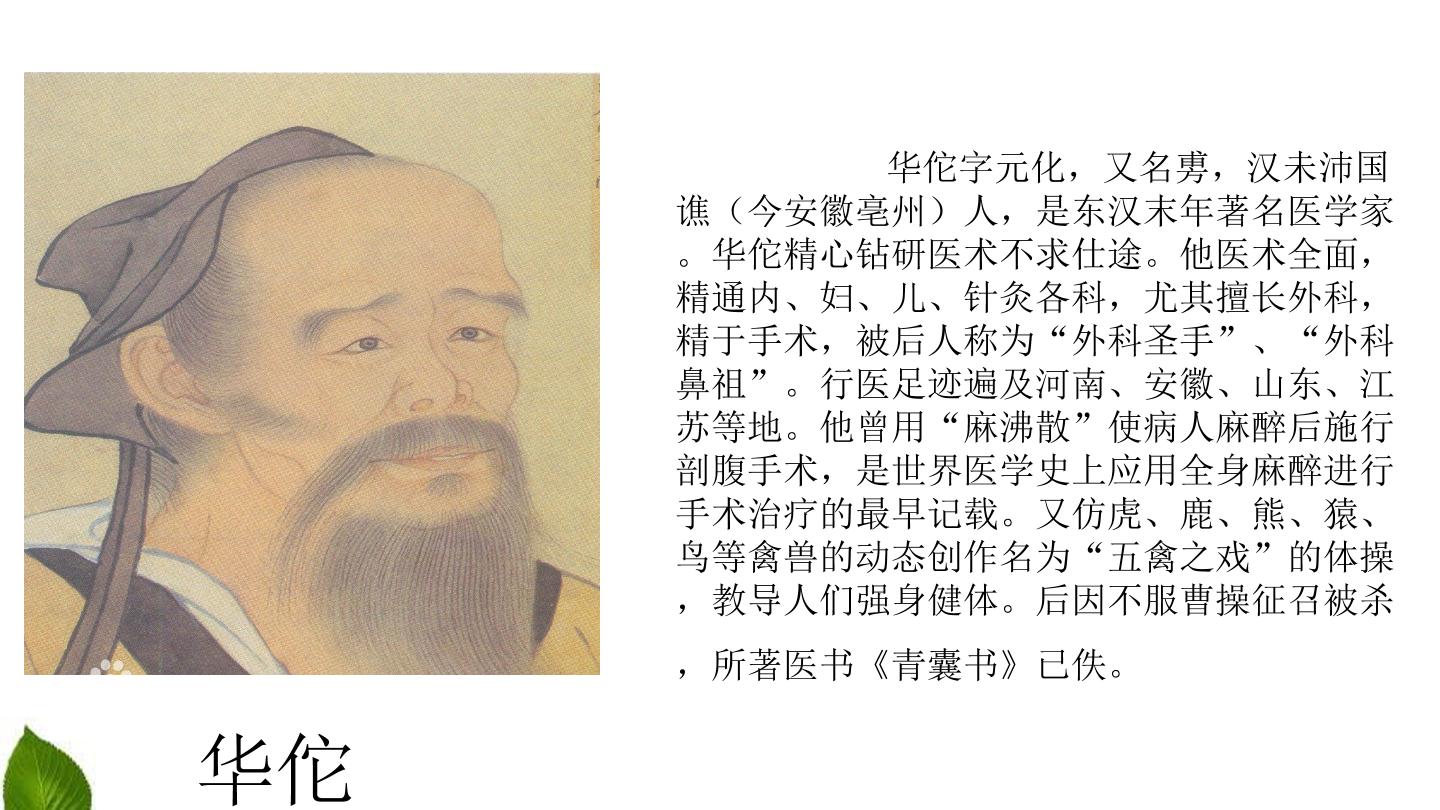 华佗字元化，又名旉，汉未沛国
谯（今安徽亳州）人，是东汉末年著名医学家
。华佗精心钻研医术不求仕途。他医术全面，
精通内、妇、儿、针灸各科，尤其擅长外科，
精于手术，被后人称为“外科圣手”、“外科
鼻祖”。行医足迹遍及河南、安徽、山东、江
苏等地。他曾用“麻沸散”使病人麻醉后施行
剖腹手术，是世界医学史上应用全身麻醉进行
手术治疗的最早记载。又仿虎、鹿、熊、猿、
鸟等禽兽的动态创作名为“五禽之戏”的体操
，教导人们强身健体。后因不服曹操征召被杀
，所著医书《青囊书》已佚。
华佗